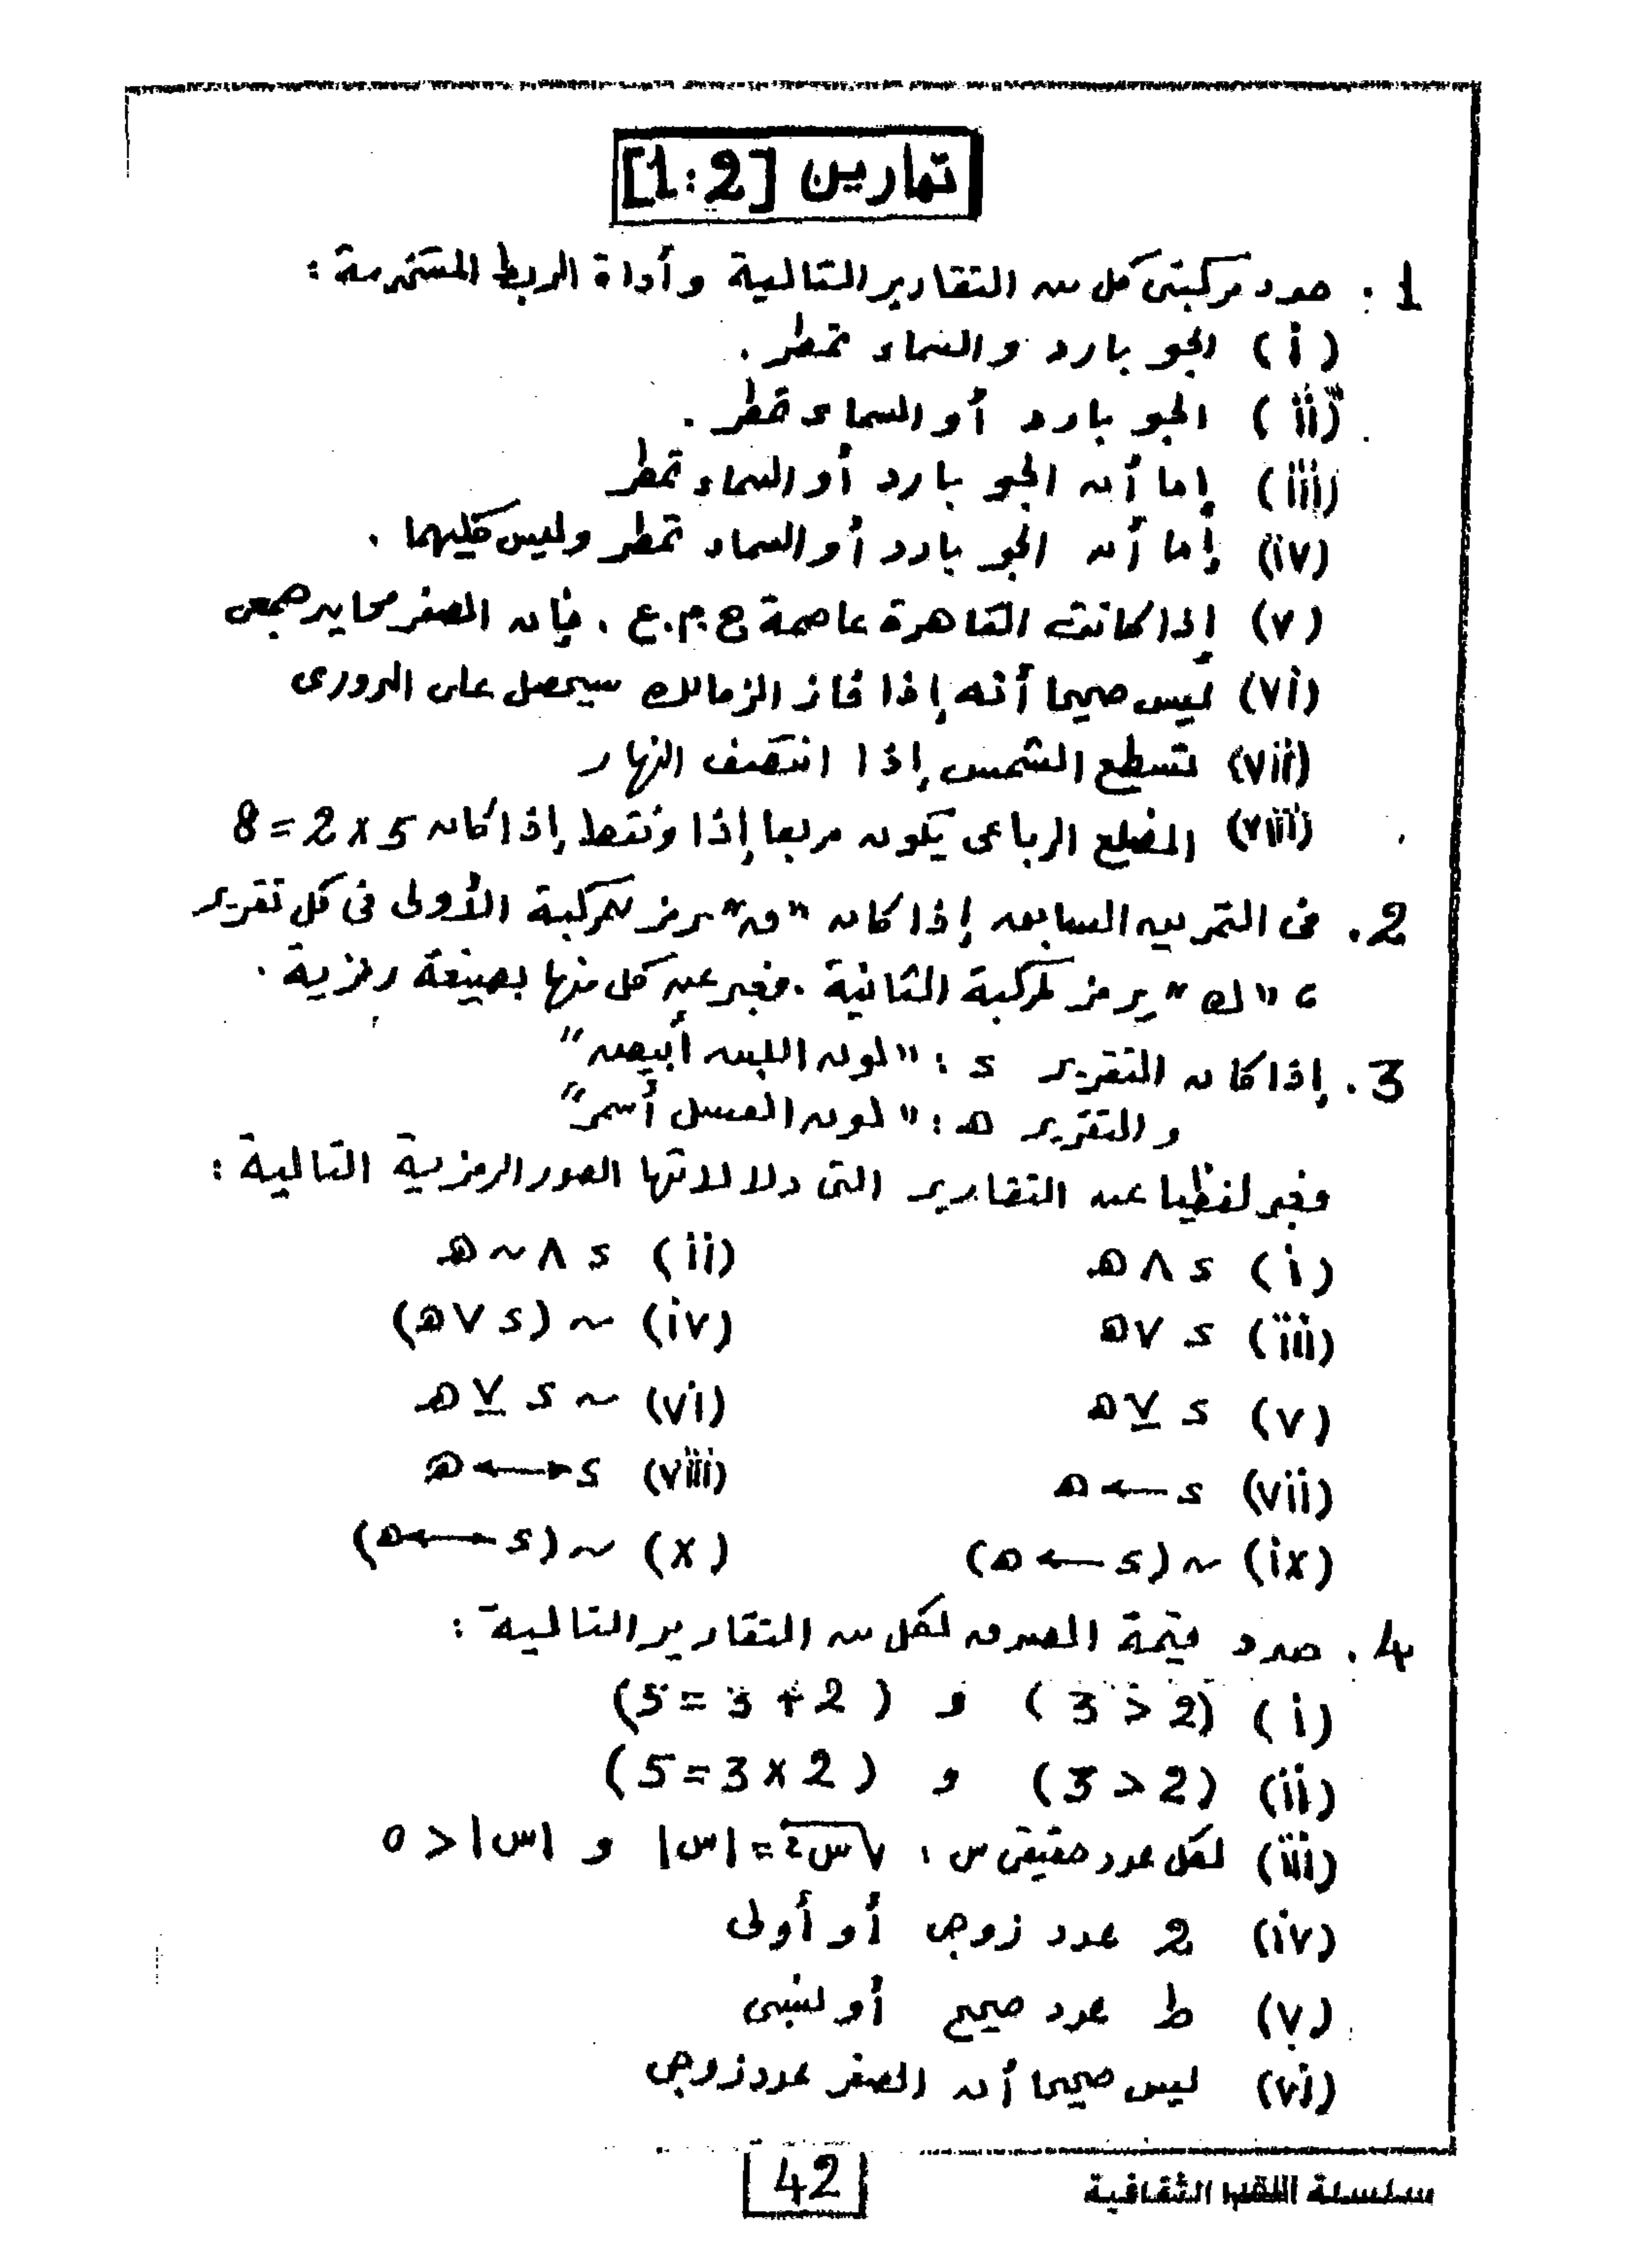 تمارين [1:2]
1. حدد مركبتى كل من التقارير التالية وأداة الربط المستخدمة :
(i) الجو بارد والسماء تمطر .
(ii) الجو بارد أو السماء تمطر .
(iii) إما أن الجو بارد أو السماء تمطر
(iv) إما أن الجو بارد أو السماء تمطر وليس كليهما .
(v) إذا كانت القاهرة عاصمة ج.م.ع . فإن الصفر محايد جمعى
(vi) ليس صحيحا أنه إذا فاز الزمالك سيحصل على الدورى
(vii) تسطع الشمس إذا انتصف النهار
(viii) المضلع الرباعى يكون مربعا إذا وفقط إذا كان 5 x 2 = 8
2. فى التمرين السابق إذا كان "ں" يرمز للمركبة الأولى فى كل تقرير
، "ك" يرمز للمركبة الثانية . فعبر عن كل منها بصيغة رمزية .
3. إذا كان التقرير د : "لون اللبن أبيض"
والتقرير هـ : "لون العسل أسمر"
فعبر لفظيا عن التقارير التى دلالاتها الصور الرمزية التالية :
(i) د ∧ هـ (ii) د ∧ ~ هـ
(iii) د ∨ هـ (iv) ~ (د ∨ هـ)
(v) د ⊻ هـ (vi) ~ د ⊻ هـ
(vii) د ← هـ (viii) د ↔ هـ
(ix) ~ (د ← هـ) (x) ~ (د ↔ هـ)
4. حدد قيمة الصدق لكل من التقارير التالية :
(i) (2 > 3) و (2 + 3 = 5)
(ii) (2 > 3) و (2 x 3 = 5)
(iii) لكل عدد حقيقى س ، √س² = |س| و |س| > 0
(iv) 2 عدد زوجى أو أولى
(v) ط عدد صحيح أو نسبى
(vi) ليس صحيحا أن الصفر عدد زوجى
42
سلسلة الثقافية